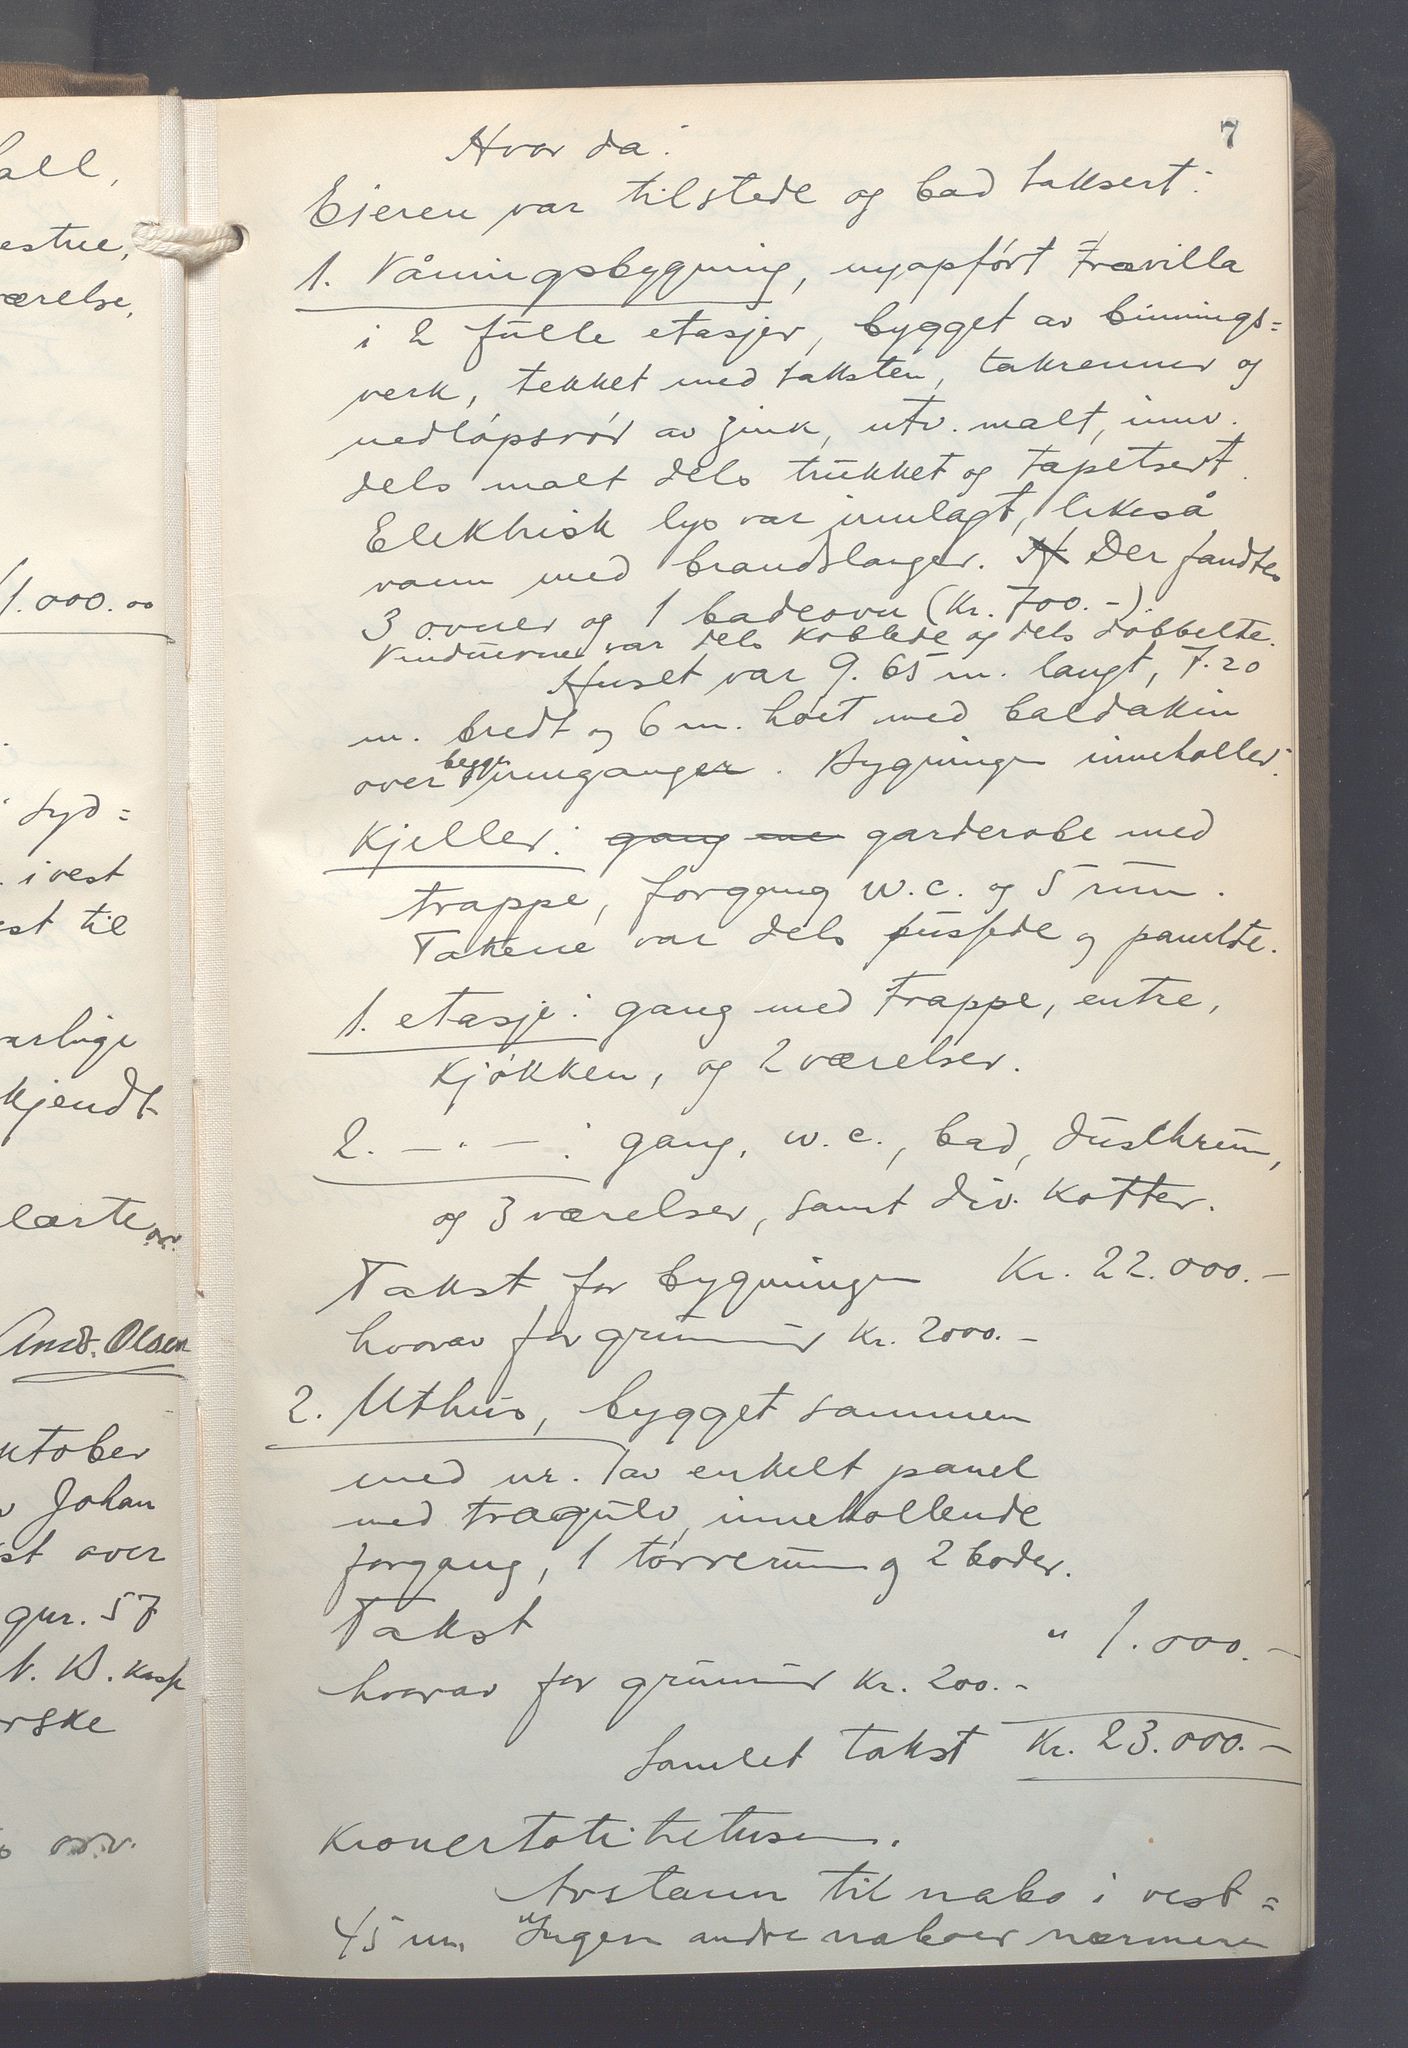 all,
estue,
værelse,
1.000.00
i syd=
. i vest
est til
kjendt
lærte osv.
Andr. Olsen
ktober
v Johan
st over
gnr. 57
N. B. kasse
rske
osv.
7
Hvor da:
Eieren var tilstede og bad taksert:
1. Våningsbygning, nyopført Trævilla
i 2 fulle etasjer, bygget av binnings=
verk, tekket med taksten, takrenner og
nedløpsrør av zink, utv. malt, innv.
dels malt dels trukket og tapetsert.
Elektrisk lys var innlagt, likeså
vann med brandslanger. Der fandtes
3 ovner og 1 badeovn (Kr. 700.-).
Vinduerne var dels koblede og dels dobbelte.
Huset var 9.65 m. langt, 7.20
m. bredt og 6 m. høit med baldakin
over begge innganger. Bygningen inneholder:
Kjeller: gang me garderobe med
trappe, forgang w.c. og 5 rum.
Takene var dels pussede og panelte.
1. etasje: gang med Trappe, entre,
Kjøkken, og 2 værelser.
2. —.— : gang, w.c., bad, dusthrum,
og 3 værelser, samt div. Kotter.
Takst for bygningen Kr. 22.000.-
hvorav for grunnmur Kr. 2000.-
2. Uthus, bygget sammen
med nr. 1 av enkelt panel
med tragulv, inneholdende
forgang, 1 tørrerum og 2 boder.
Takst " 1.000.-
hvorav for grunmur Kr. 200.-
Samlet takst Kr. 23.000.-
Kronertotitretusen.
Avstann til nabo i vest=
45 m. Ingen andre naboer nærmere